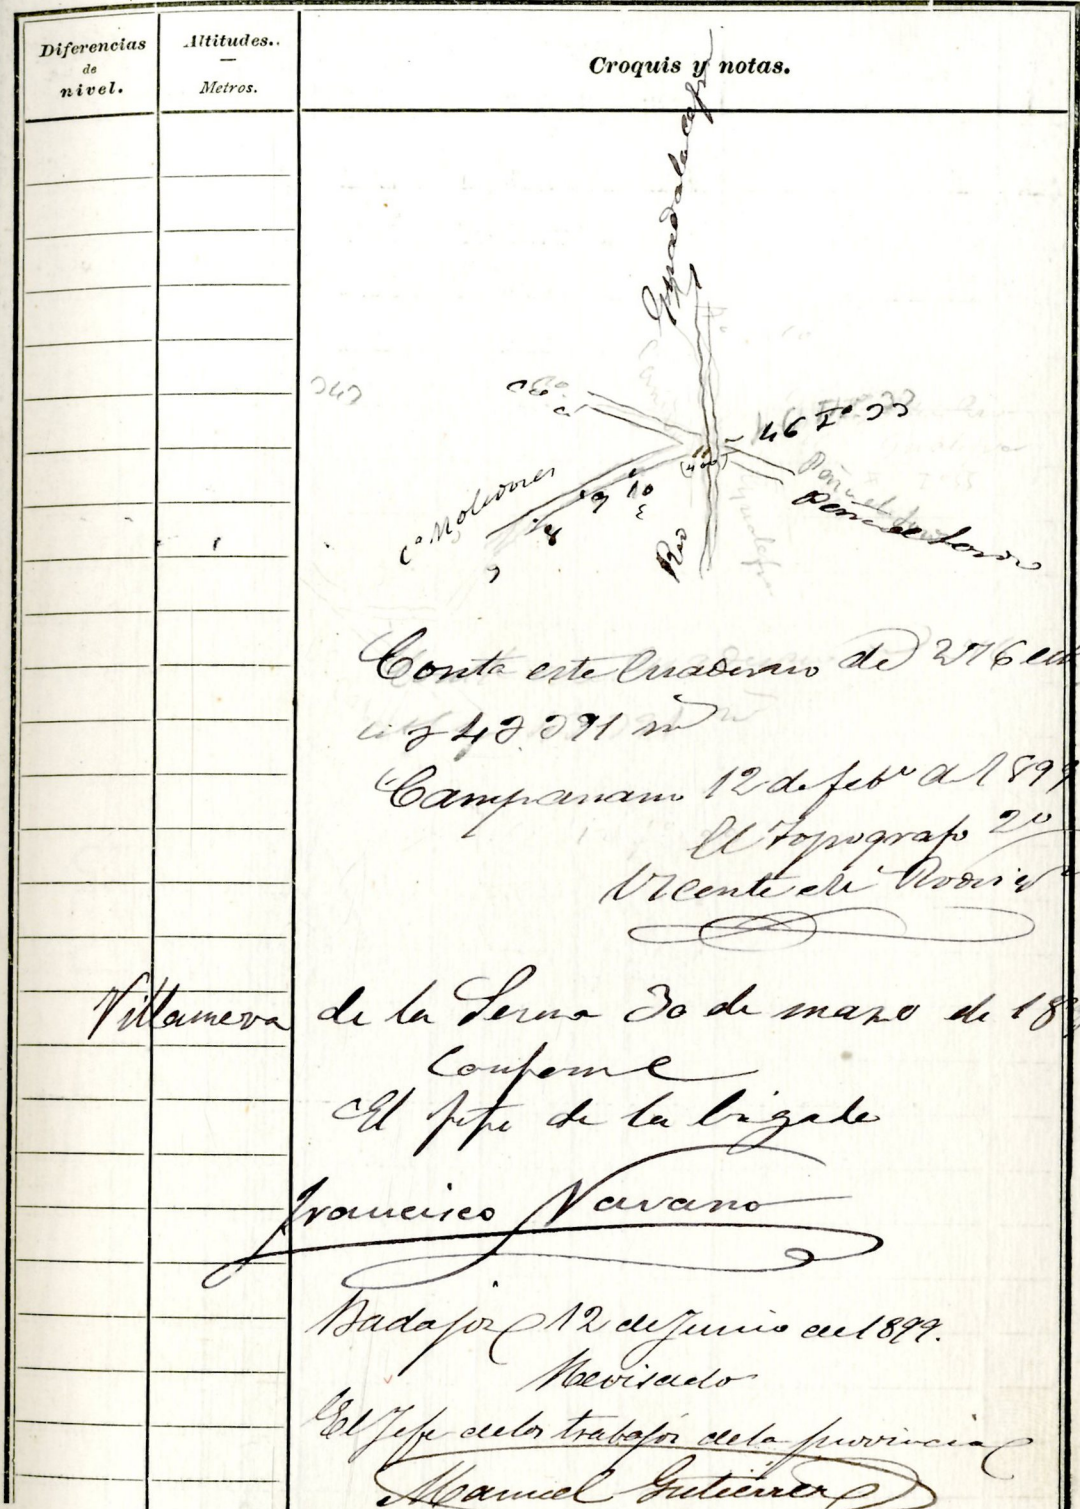 Diferencias
de
nivel.
Altitudes..
Metros.
Croquis y notas.
Rio
Cº Moledores
8
9
10
11
46 Iº
Consta este Cuaderno de 276
Campanario 12 de febº de 1899
El Topografo 2º
Vicente
Villanueva de la Serena 30 de marzo de 18
Conforme
El jefe de la brigada
Francisco Navarro
Badajoz 12 de Junio de 1899.
Revisado
El Jefe de los trabajos de la provincia
Manuel Gutiérrez